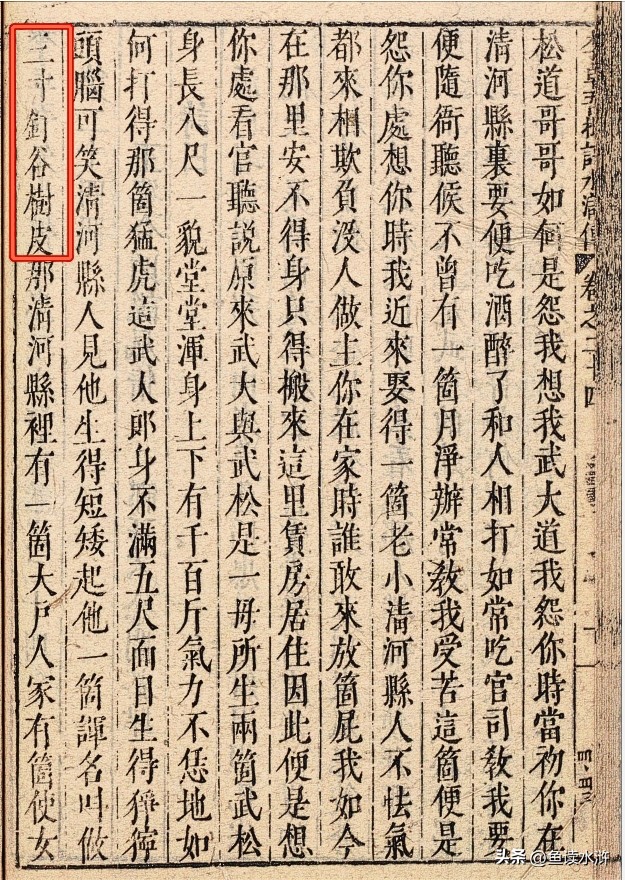 水滸傳 卷之二十四
松道哥哥如何是怨我想我武大道我怨你時當初你在
清河縣裏要便吃酒醉了和人相打如常吃官司敎我要
便隨衙聽候不曾有一箇月淨辦常敎我受苦這箇便是
怨你處想你時我近來娶得一箇老小清河縣人不怯氣
都來相欺負没人做主你在家時誰敢來放箇屁我如今
在那里安不得身只得搬來這里賃房居住因此便是想
你處看官聽說原來武大與武松是一母所生兩箇武松
身長八尺一貌堂堂渾身上下有千百斤氣力不恁地如
何打得那箇猛虎這武大郎身不滿五尺面目生得猙獰
頭腦可笑清河縣人見他生得短矮起他一箇諢名叫做
三寸釘谷樹皮那清河縣裡有一箇大戶人家有箇使女
头条 @鱼读水浒